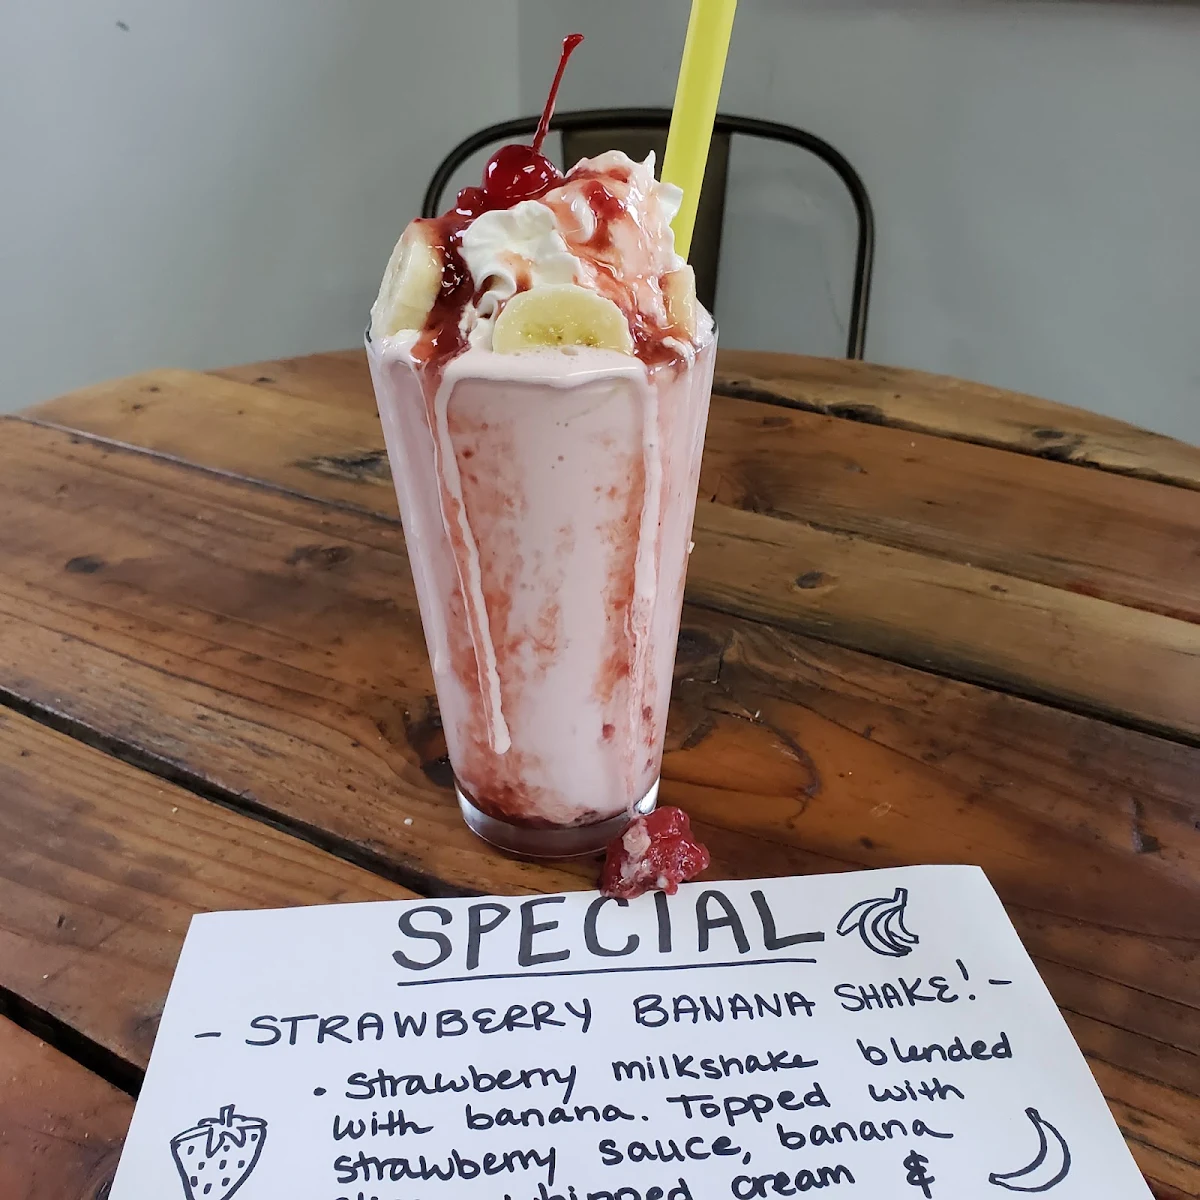 SPECIAL
- STRAWBERRY BANANA SHAKE! -
• Strawberry milkshake blended
with banana. Topped with
strawberry sauce, banana
whipped cream &